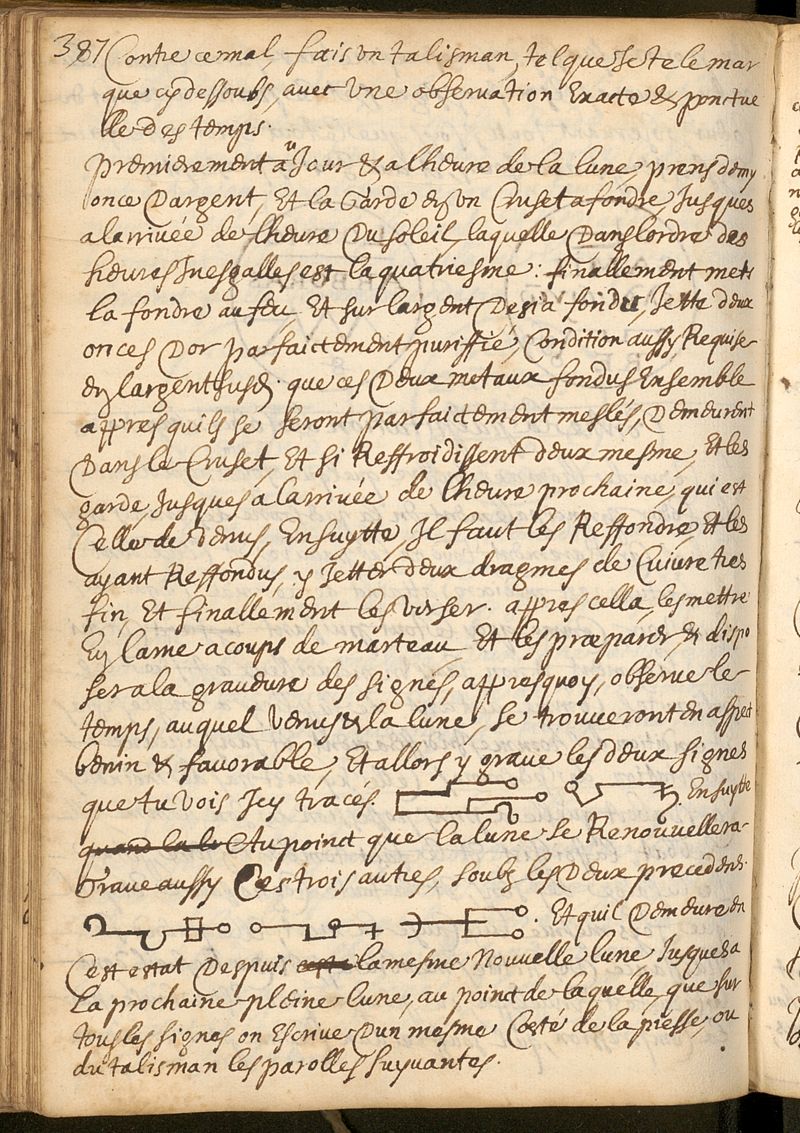 387 Contre ce mal, fais un talisman, tel que Je te le mar
que cy dessoubs, avec une observation Exacte & ponctue
lle des temps.
premierement au Jour & a lheure de la lune, prens demy
once Dargent, Et la Garde en un Cruset a fondre, Jusques
a larrivée de lheure Du soleil, laquelle Dans lordre des
heures Inesgalles est la quatriesme: finallement mets
la fondre au feu, Et sur largent Desia fondu, Jette deux
onces Dor parfaictement puriffié, Condition aussy Requise
en largent susd. que ces Deux metaux fondus Ensemble
appres quils se seront parfaictement meslés, Demeurent
Dans le Cruset, Et si Reffroidissent deux mesme, Et les
garde, Jusques a larrivée de lheure prochaine, qui est
Celle de venus, Ensuytte, Il faut les Reffondre, Et les
ayant Reffondus, y Jetter deux dragmes de Cuivre tres
fin, Et finallement les verser. appres cella, les mettre
En lame a coups de marteau, Et les præparer, & dispo
ser a la graveure des signes, appres quoy, observe le
temps, auquel venus & la lune, se trouveront en aspect
benin & favorable, Et allors y grave les deux signes
que tu vois Icy tracés. Ensuytte
quand la lu Au poinct que la lune se Renouvellera
Grave aussy Ces trois autres, soubz les Deux precedens.
Et quil Demeure en
cest estat Despuis la mesme Nouvelle lune Jusques a
La prochaine pleine lune, au point de laquelle, que sur
tous les signes on Escrive Dun mesme Costé de la piesse, ou
du talisman les parolles suyvantes.